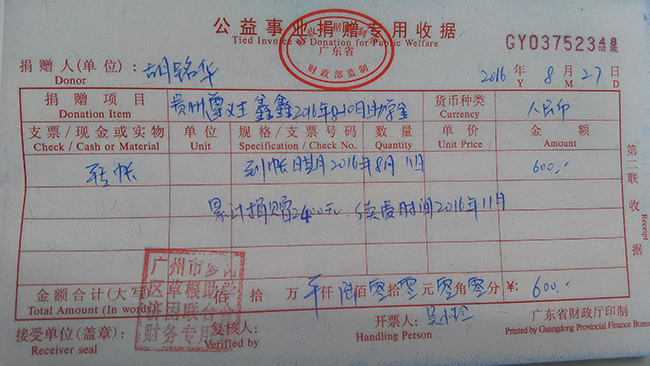 公益事业捐赠专用收据
Tied Invoice of Donation for Public Welfare
广东省
财政部监制
GY03752348
捐赠人(单位): 胡铭华
Donor
2016 年 8 月 27 日
Y M D
捐赠项目 贵州 2016年8-10月助学金 货币种类 人民币
Donation Item Currency
支票/现金或实物 单位 规格/支票号码 数量 单价 金额
Check / Cash or Material Unit Specification / Check No. Quantity Unit Price Amount
转帐 到帐日期2016年8月11日 600.-
累计捐赠2400元, 续费时间2016年11月
第二联 收据
Receipt
金额合计(大写) 佰 拾 万 仟 陆佰零拾零元零角零分 ¥: 600.-
Total Amount (In words)
广州市
区草根助学
济困联
财务专用
接受单位(盖章): 复核人: 开票人:
Receiver seal Verified by Handling Person
广东省财政厅印制
Printed by Guangdong Provincial Finance Bureau